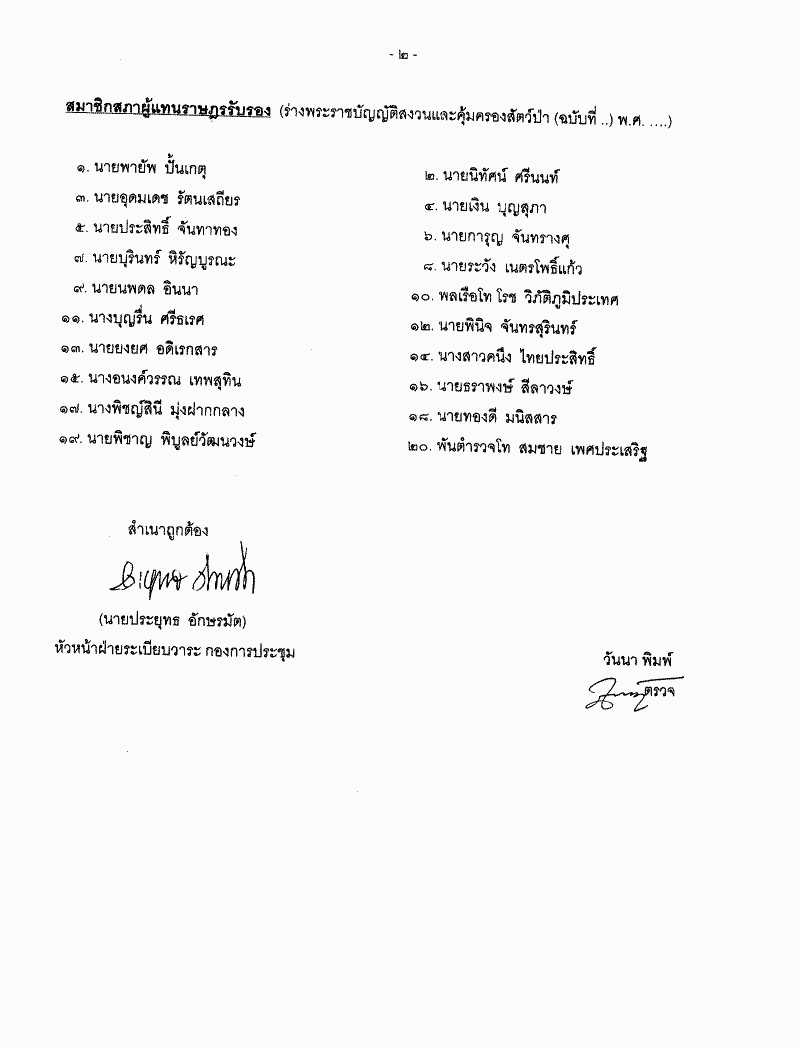 - ๒ -
สมาชิกสภาผู้แทนราษฎรรับรอง (ร่างพระราชบัญญัติสงวนและคุ้มครองสัตว์ป่า (ฉบับที่ ..) พ.ศ. ....)
๑. นายพายัพ ปั้นเกตุ
๒. นายนิทัศน์ ศรีนนท์
๓. นายอุดมเดช รัตนเสถียร
๔. นายเงิน บุญสุภา
๕. นายประสิทธิ์ จันทาทอง
๖. นายการุญ จันทรางศุ
๗. นายบุรินทร์ หิรัญบูรณะ
๘. นายระวัง เนตรโพธิ์แก้ว
๙. นายนพดล อินนา
๑๐. พลเรือโท โรช วิภัติภูมิประเทศ
๑๑. นางบุญรื่น ศรีธเรศ
๑๒. นายพินิจ จันทรสุรินทร์
๑๓. นายยงยศ อดิเรกสาร
๑๔. นางสาวคนึง ไทยประสิทธิ์
๑๕. นางอนงค์วรรณ เทพสุทิน
๑๖. นายธราพงษ์ สีลาวงษ์
๑๗. นางพิชญ์สินี มุ่งฝากกลาง
๑๘. นายทองดี มนิสสาร
๑๙. นายพิชาญ พิบูลย์วัฒนวงษ์
๒๐. พันตำรวจโท สมชาย เพศประเสริฐ
สำเนาถูกต้อง
(นายประยุทธ อักษรมัต)
หัวหน้าฝ่ายระเบียบวาระ กองการประชุม
วันนา พิมพ์
ตรวจ